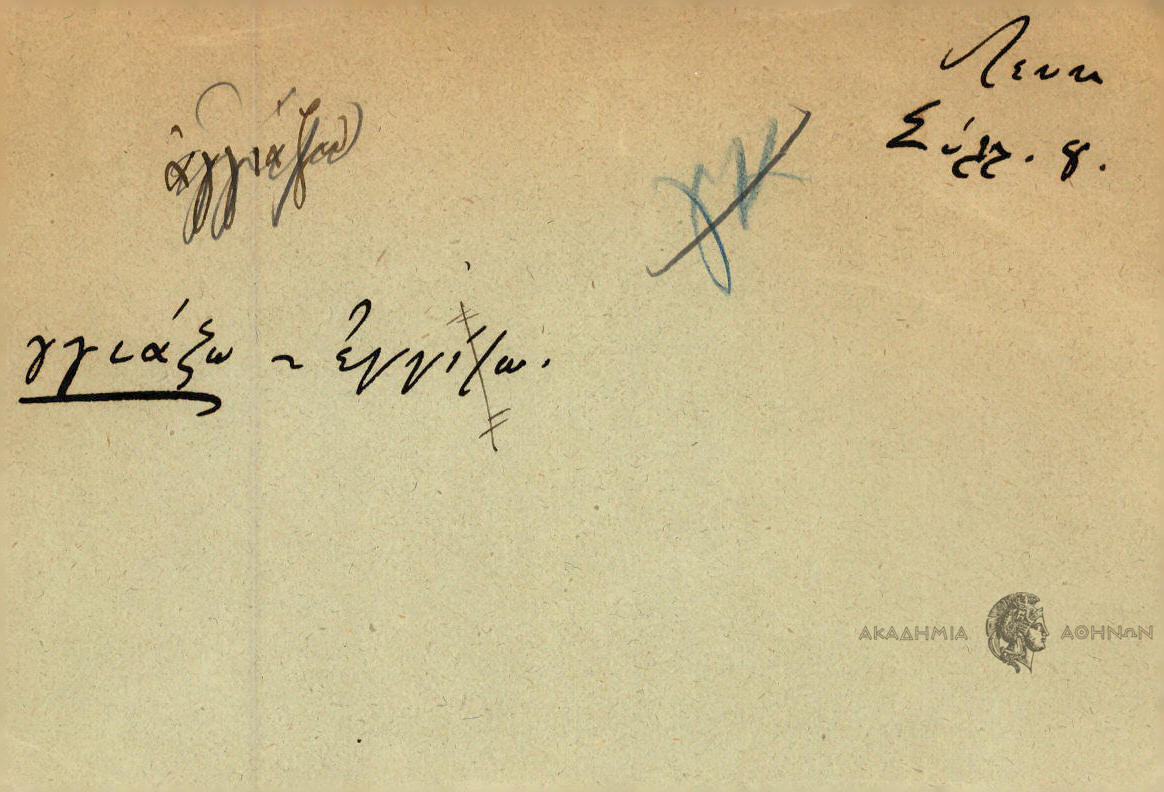 Λευκ
Σύλλ. 8.
ἀγγιάζω
γκ
γγιάζω ~ ἐγγίζω.
ΑΚΑΔΗΜΙΑ ΑΘΗΝΩΝ